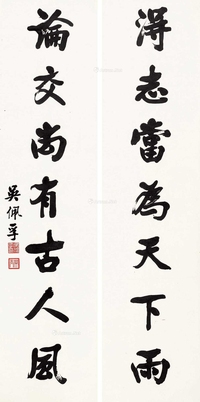 得志當為天下雨
論交尚有古人風
吳佩孚